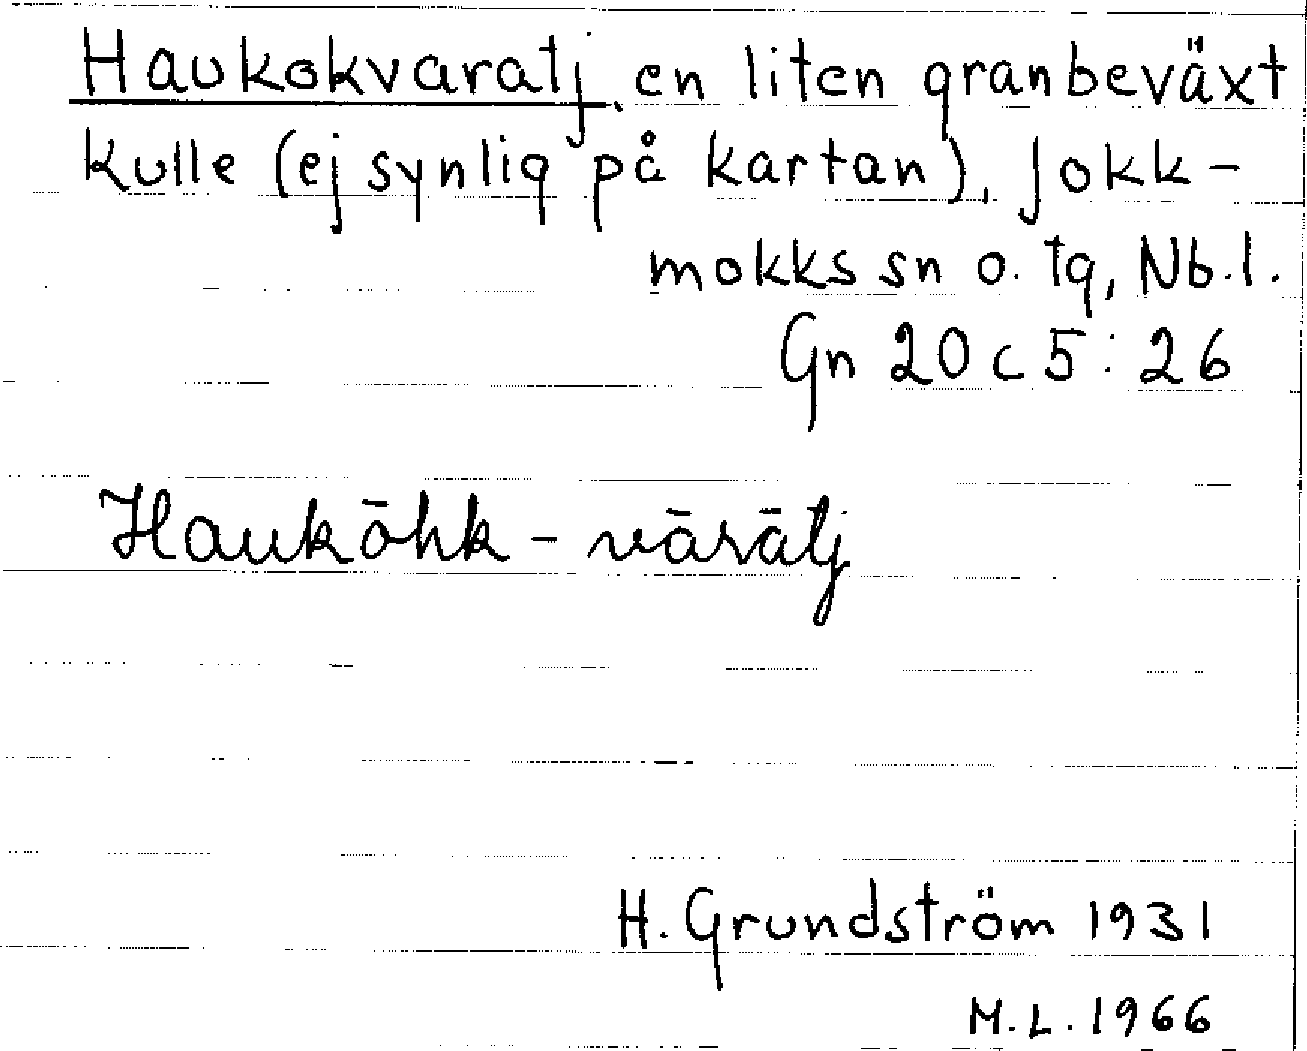 Haukokvaratj, en liten granbeväxt
kulle (ej synlig på kartan), Jokk-
mokks sn o. tg, Nb. l.
Gn 20 c 5 : 26
Haukōhk - vārātj
H. Grundström 1931
M. L. 1966